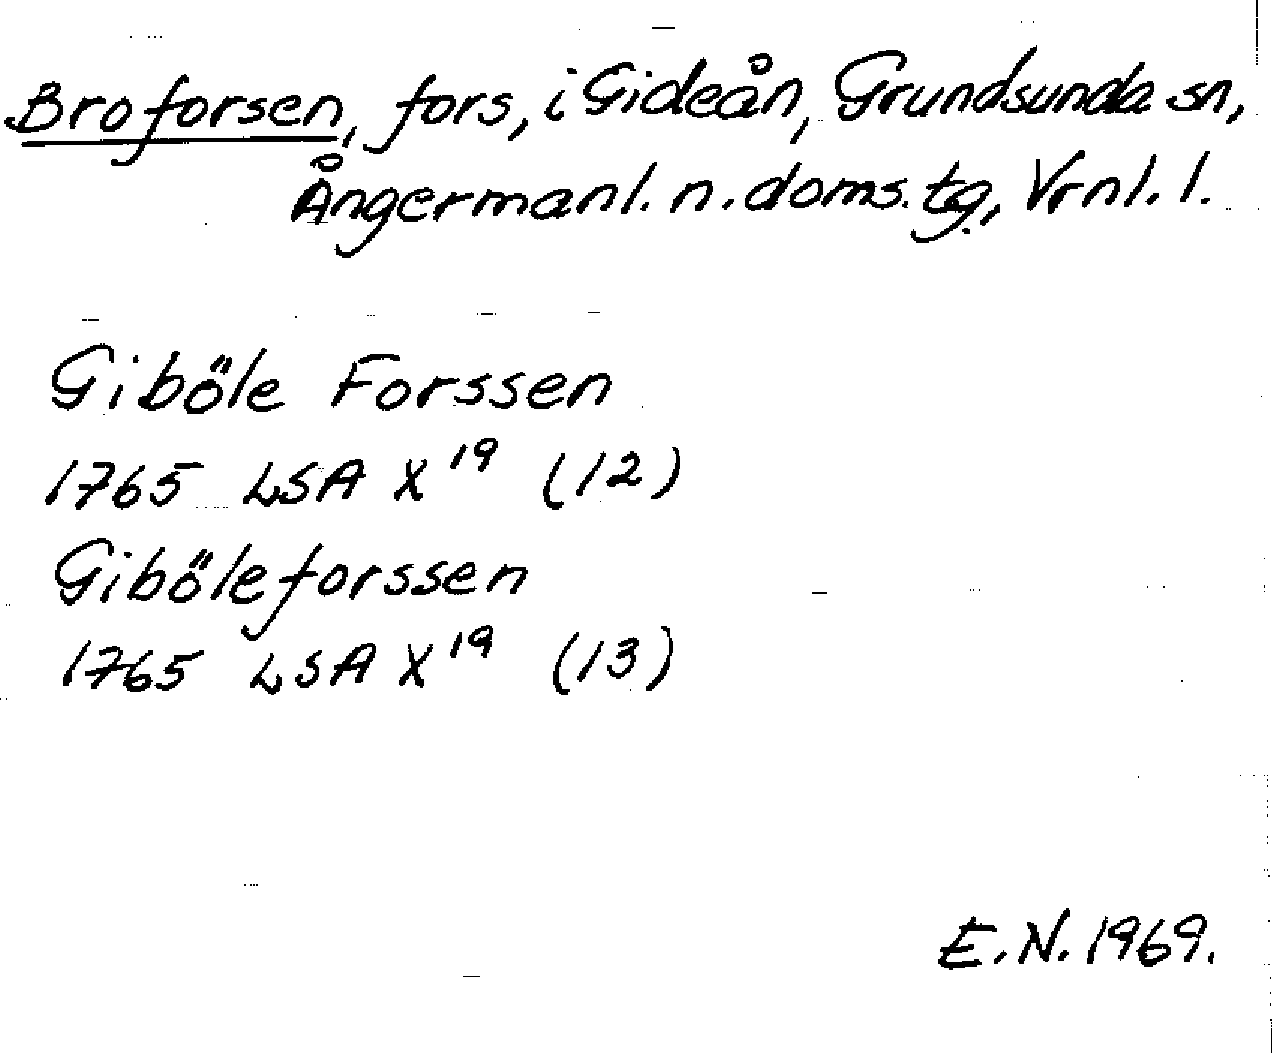 Broforsen, fors, i Gideån, Grundsunda sn,
Ångermanl. n. doms. tg, Vrnl. l.
Giböle Forssen
1765 LSA X¹⁹ (12)
Giböleforssen
1765 LSA X¹⁹ (13)
E.N. 1969.